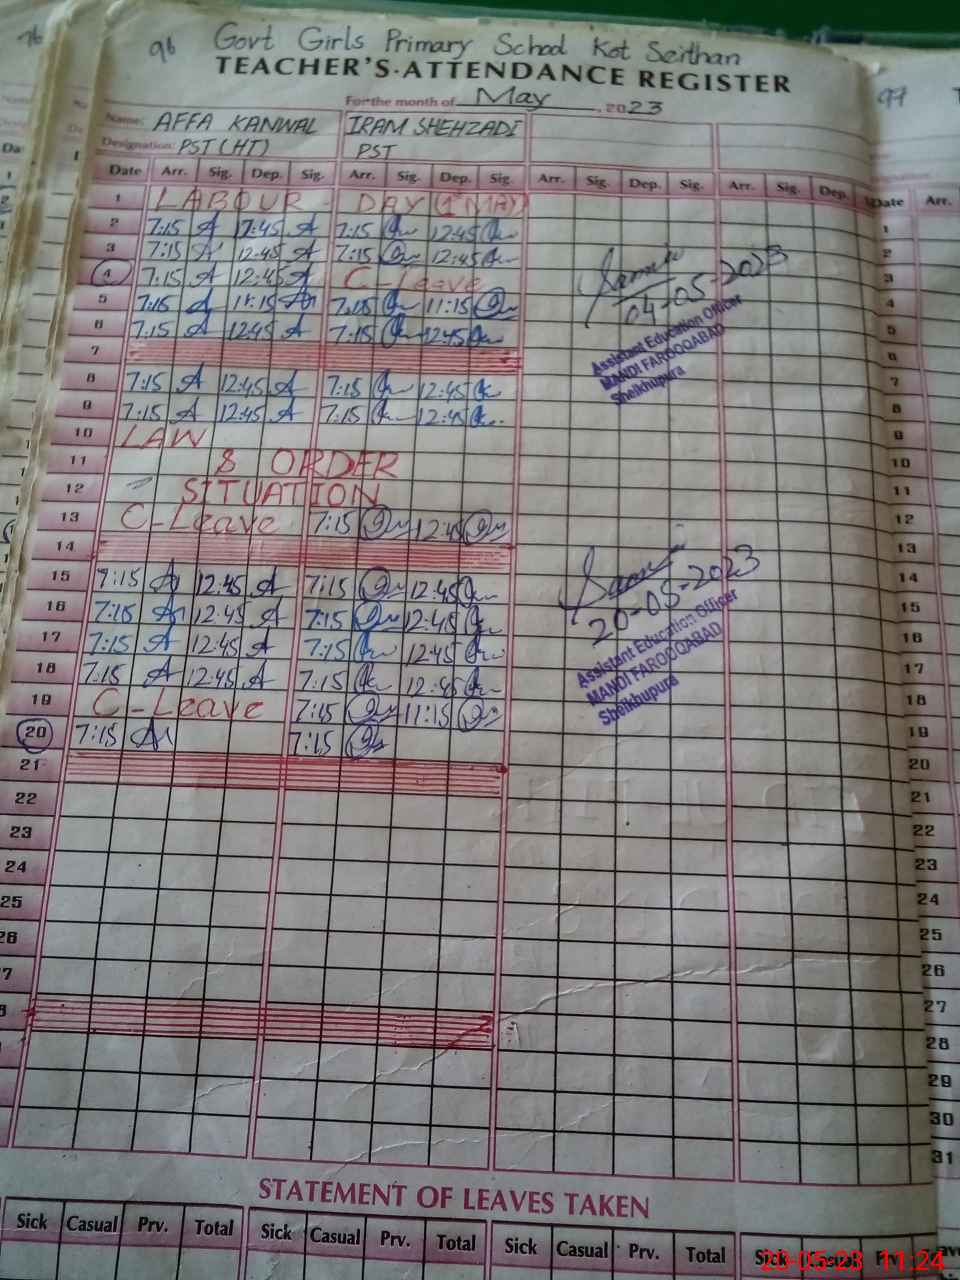 96 Govt Girls Primary School Kot Serthan
TEACHER'S·ATTENDANCE REGISTER 97
For the month of May, 2023
Name: AFFA KANWAL IRAM SHEHZADI
Designation: PST (HT) PST
Date Arr. Sig. Dep. Sig. Arr. Sig. Dep. Sig. Arr. Sig. Dep. Sig. Arr. Sig. Dep. Date Arr.
1 LABOUR - DAY (1 MAY) 1
2 7:15 A 12:45 A 7:15 12:45 2
3 7:15 A 12:45 A 7:15 12:45
4 7:15 A 12:45 A C-Leave 3
04-05-2023
5 7:15 A 11:15 7:15 11:15 4
6 7:15 A 12:45 A 7:15 12:45 5
Assistant Education Officer
MANDI FAROOQABAD
Sheikhupura
7 6
8 7:15 A 12:45 A 7:15 12:45 7
9 7:15 A 12:45 A 7:15 12:45 8
10 LAW 9
11 & ORDER 10
12 SITUATION 11
13 C-Leave 7:15 12:45 12
14 13
15 7:15 A 12:45 A 7:15 12:45 14
20-05-2023
16 7:15 A 12:45 A 7:15 12:45 15
17 7:15 A 12:45 A 7:15 12:45 16
Assistant Education Officer
MANDI FAROOQABAD
Sheikhupura
18 7:15 A 12:45 A 7:15 12:45 17
19 C-Leave 7:15 11:15 18
20 7:15 7:15 19
21 20
22 21
23 22
24 23
25 24
26 25
26
27
28
29
30
31
STATEMENT OF LEAVES TAKEN
Sick Casual Prv. Total Sick Casual Prv. Total Sick Casual Prv. Total Sick Casual Prv.
20-05-23 11:24